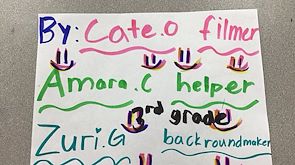 By: Cate.O filmer
Amara.C helper
3rd grade!
Zuri.G backroundmaker